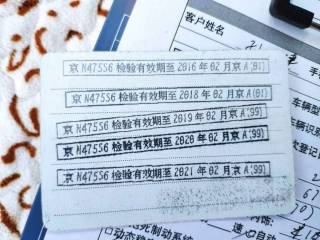 客户姓名
京 N475S6 检验有效期至 2016 年 02 月京 A(01)
京 N475S6 检验有效期至 2018 年 02 月京 A(01)
京 N475S6 检验有效期至 2019 年 02 月京 A(99)
京 N475S6 检验有效期至 2020 年 02 月京 A(99)
京 N475S6 检验有效期至 2021 年 02 月京 A(99)
车辆型
车辆识别
次登记日